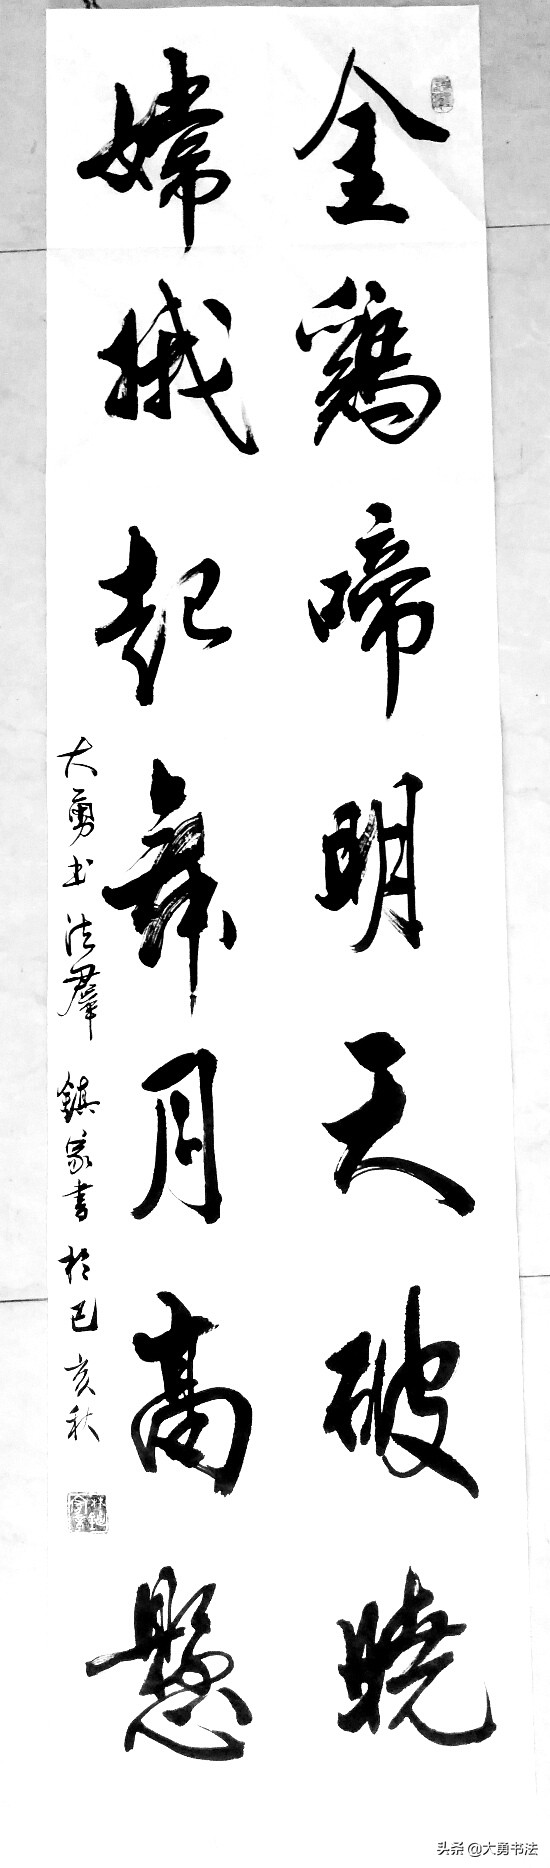 金鷄啼明天破曉
嫦娥起舞月高懸
大勇书法羣 鎮家書 於己亥秋
头条 @大勇书法